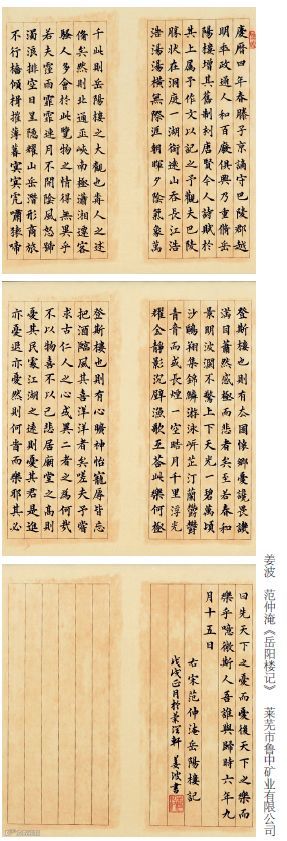 慶曆四年春滕子京謫守巴陵郡越
明年政通人和百廢俱興乃重脩岳
陽樓增其舊制刻唐賢今人詩賦於
其上屬予作文以記之予觀夫巴陵
勝狀在洞庭一湖銜遠山吞長江浩
浩湯湯橫無際涯朝暉夕陰氣象萬
千此則岳陽樓之大觀也前人之述
備矣然則北通巫峽南極瀟湘遷客
騷人多會於此覽物之情得無異乎
若夫霪雨霏霏連月不開陰風怒號
濁浪排空日星隱耀山岳潛形商旅
不行檣傾楫摧薄暮冥冥虎嘯猿啼
登斯樓也則有去國懷鄉憂讒畏譏
滿目蕭然感極而悲者矣至若春和
景明波瀾不驚上下天光一碧萬頃
沙鷗翔集錦鱗游泳岸芷汀蘭鬱鬱
青青而或長煙一空皓月千里浮光
耀金靜影沉璧漁歌互答此樂何極
登斯樓也則有心曠神怡寵辱皆忘
把酒臨風其喜洋洋者矣嗟夫予嘗
求古仁人之心或異二者之為何哉
不以物喜不以己悲居廟堂之高則
憂其民處江湖之遠則憂其君是進
亦憂退亦憂然則何時而樂耶其必
曰先天下之憂而憂後天下之樂而
樂乎噫微斯人吾誰與歸時六年九
月十五日
右宋范仲淹岳陽樓記
戊戌正月於 深軒 姜波書
姜波 范仲淹《岳阳楼记》 莱芜市鲁中矿业有限公司